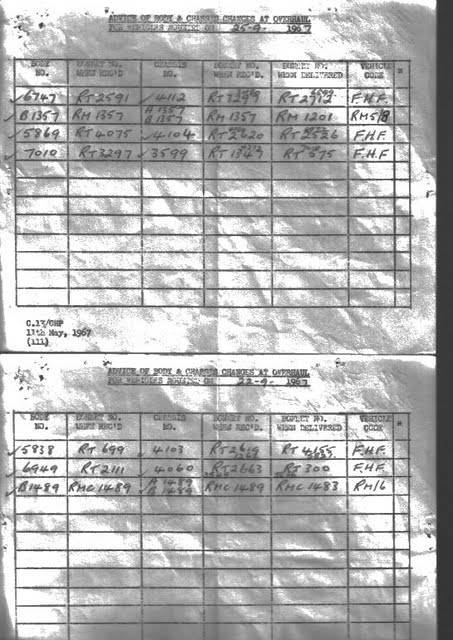 ADVICE OF BODY & CHASSIS CHANGES AT OVERHAUL
FOR VEHICLES MOUNTED ON 25-9- 1967
BODY NO. BONNET NO. WHEN REC'D. CHASSIS NO. BONNET NO. WHEN REC'D. BONNET NO. WHEN DELIVERED VEHICLE CODE
✓6747 RT2591 ✓4112 RT3297 RT2712 F.H.F.
✓B1357 RM1357 A1357 B1357 RM1357 RM 1201 RM5/8
✓5869 RT4075 ✓4104 RT2620 F.H.F.
✓7010 RT3297 ✓3599 RT1347 RT575 F.H.F
C.13/CHP
11th May, 1967
(111)
ADVICE OF BODY & CHASSIS CHANGES AT OVERHAUL
FOR VEHICLES MOUNTED ON 22-9- 1967
BODY NO. BONNET NO. WHEN REC'D. CHASSIS NO. BONNET NO. WHEN REC'D. BONNET NO. WHEN DELIVERED VEHICLE CODE
✓5838 RT 699 ✓4103 RT2619 RT4655 F.H.F.
✓6949 RT2111 ✓4060 RT2663 RT300 F.H.F
✓B1489 RMC1489 A1489 B1489 RMC1489 RMC1483 RM/6